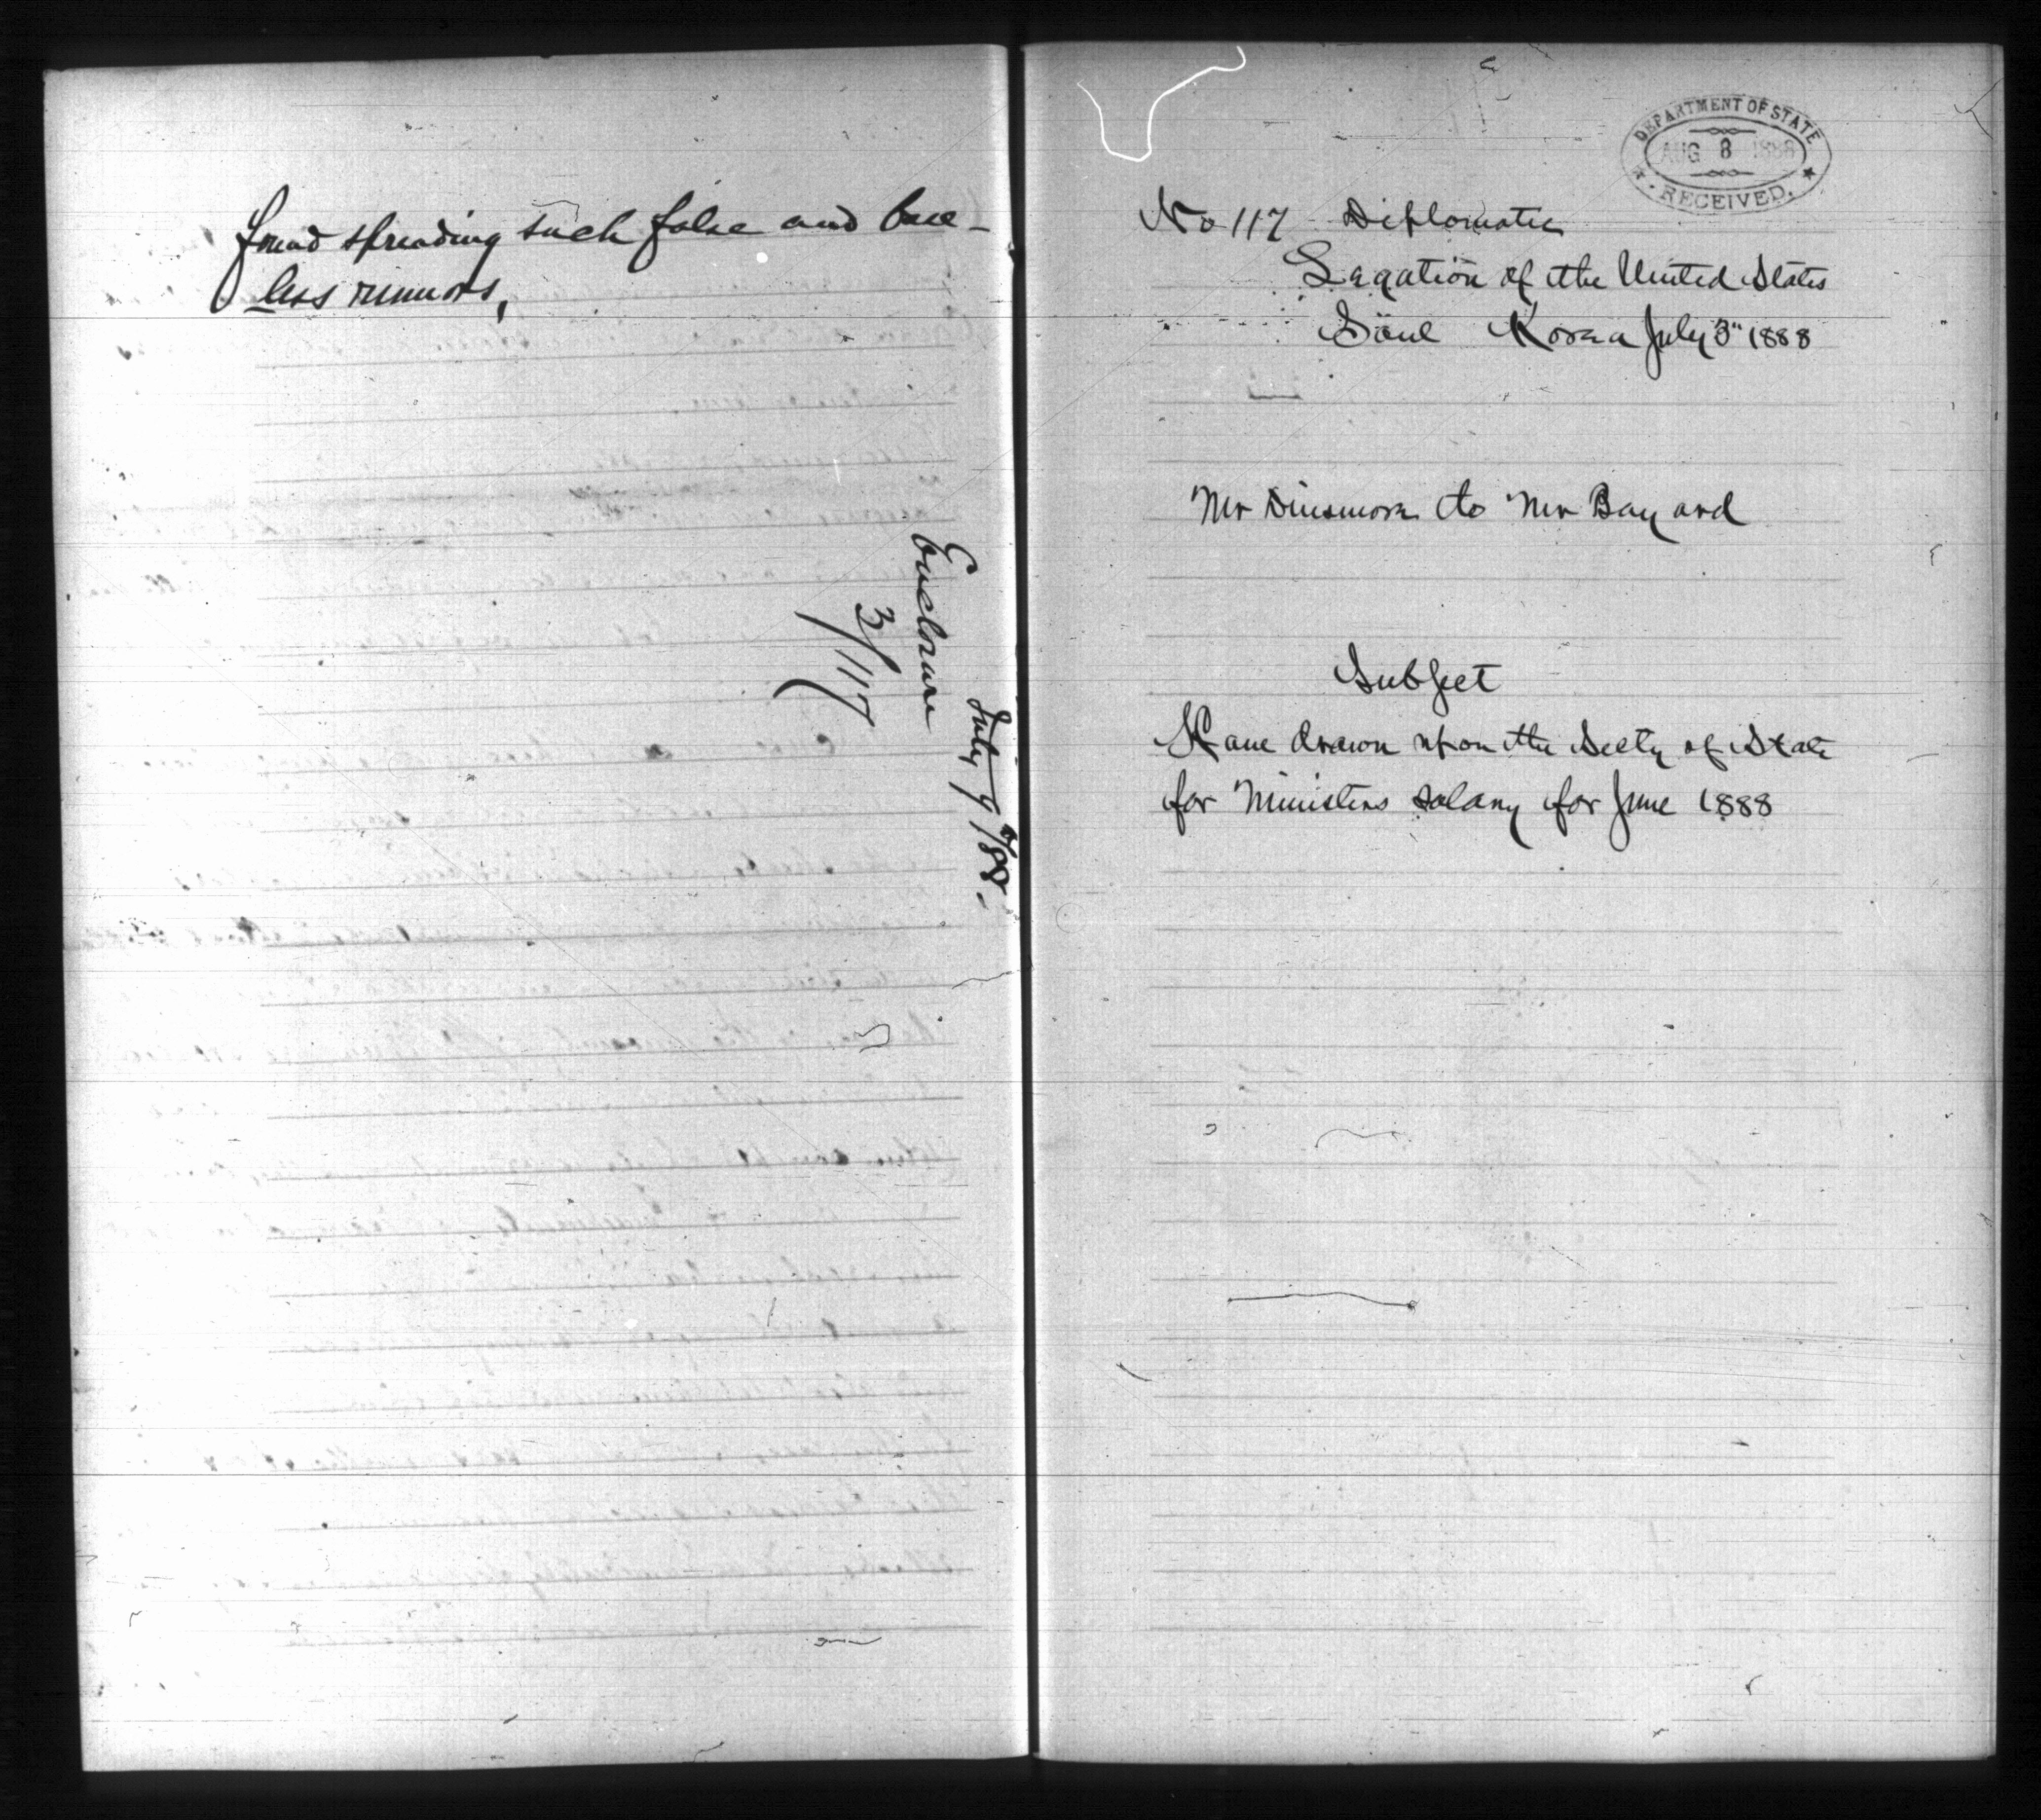 found spreading such false and base-
less rumors,
Enclosure
3/117
July 9/88.
DEPARTMENT OF STATE
AUG 8 1888
RECEIVED.
No 117 Diplomatic
Legation of the United States
Söul Korea July 3" 1888
Mr Dinsmore to Mr Bayard
Subject
Have drawn upon the Secty of State
for Ministers salary for June 1888